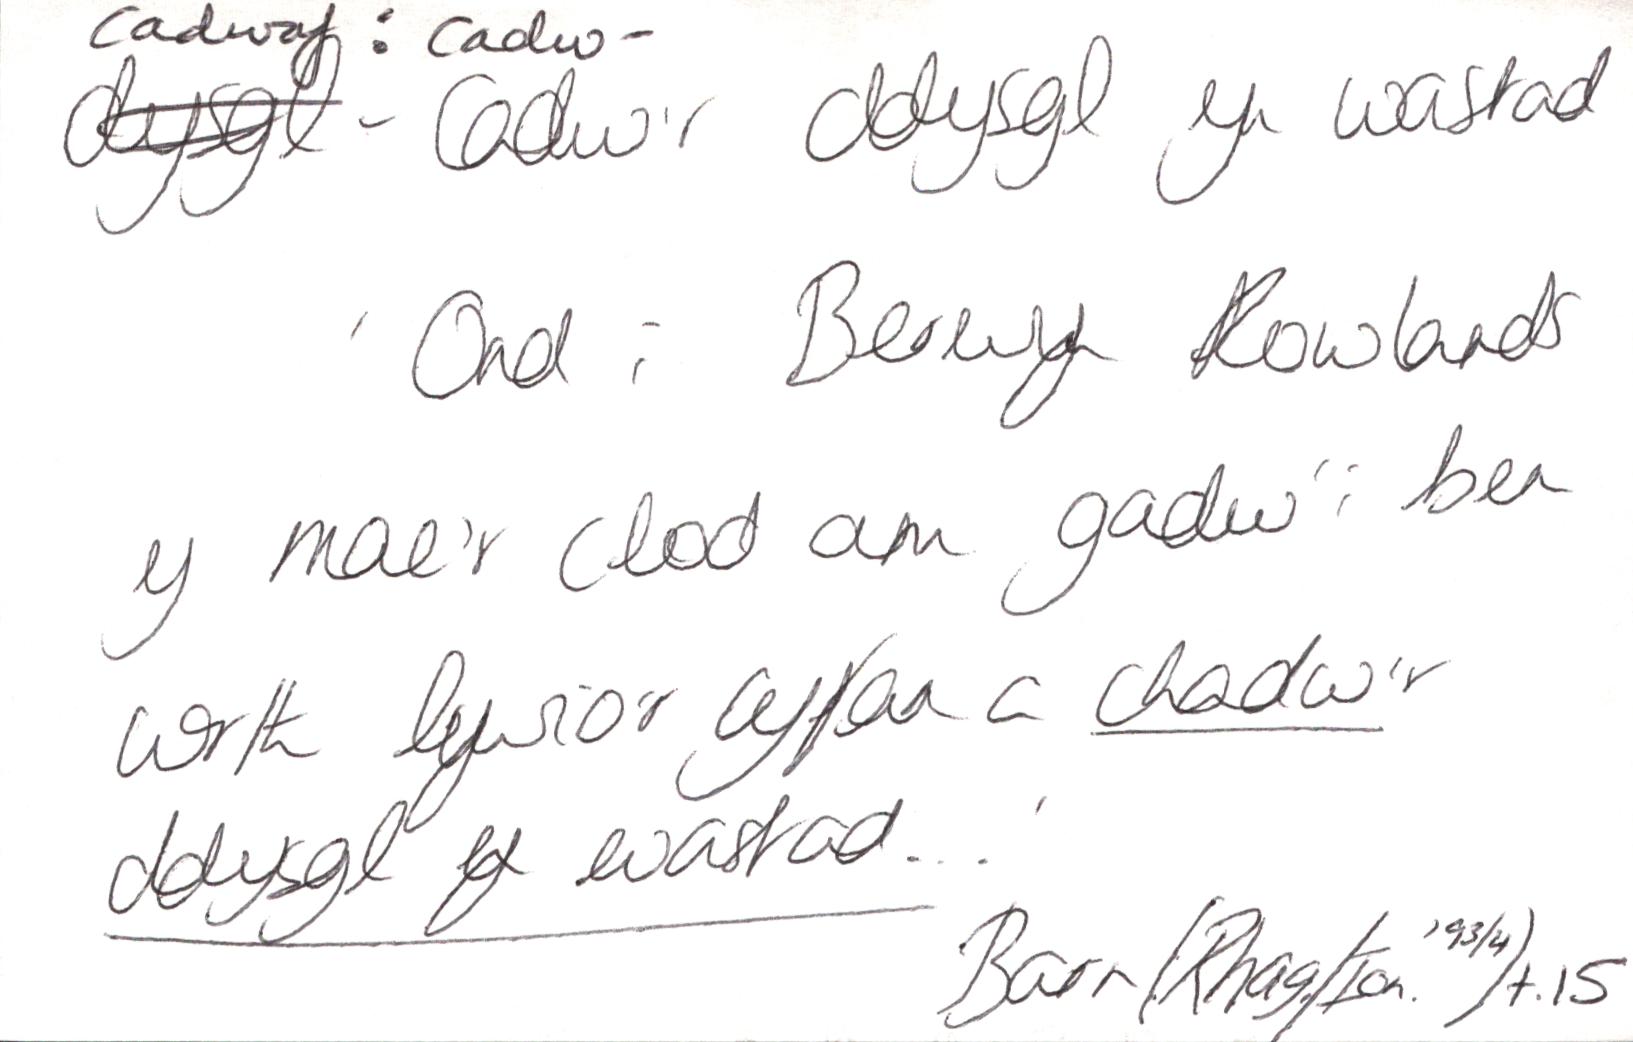 cadwaf : cadw -
dysgl - Cadw'r ddysgl yn wastad
'Ond i Berwyn Rowlands
y mae'r clod am gadw'i ben
wrth lywio'r cyfan a chadw'r
ddysgl yn wastad...'
Barn (Rhag/Ion. '93/4) t.15